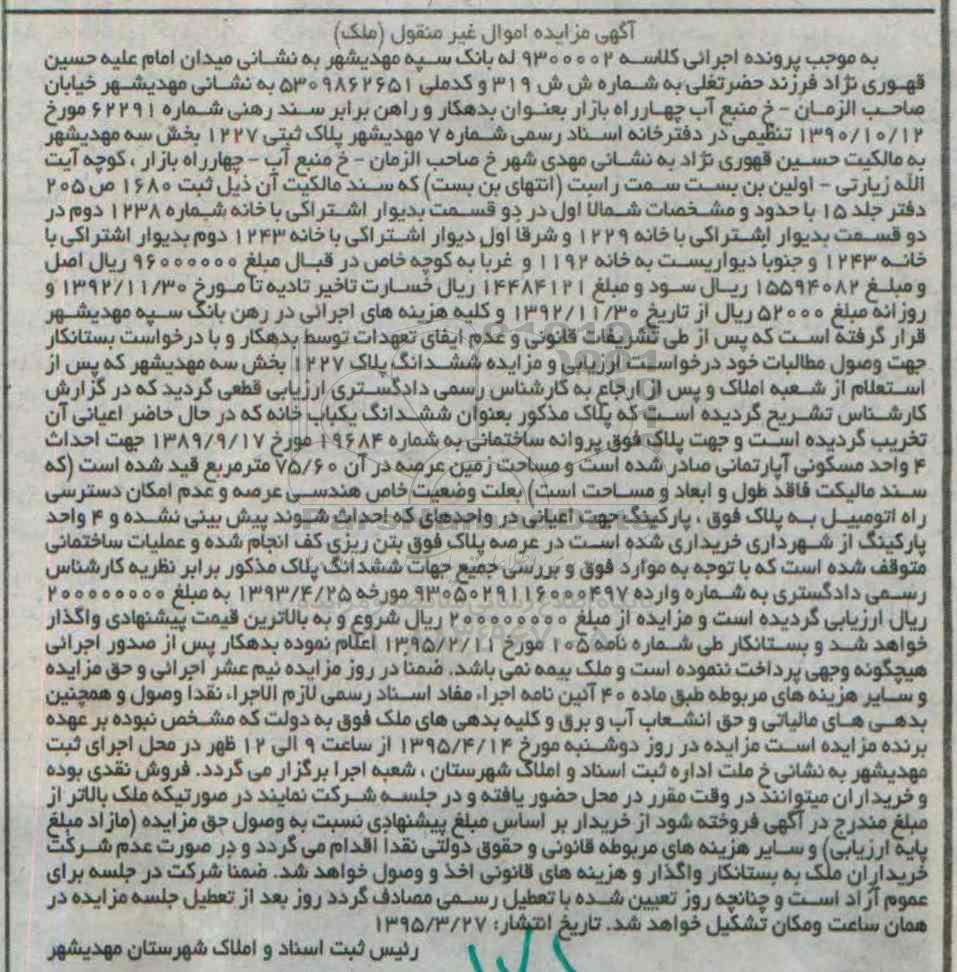 آگهی مزایده اموال غیر منقول (ملک)
به موجب پرونده اجرائی کلاسه ۹۳۰۰۰۰۲ له بانک سپه مهدیشهر به نشانی میدان امام علیه حسین
قهوری نژاد فرزند حضرتقلی به شماره ش ش ۳۱۹ و کدملی ۵۳۰۹۸۶۲۶۵۱ به نشانی مهدیشهر خیابان
صاحب الزمان - خ منبع آب چهارراه بازار بعنوان بدهکار و راهن برابر سند رهنی شماره ۶۲۲۹۱ مورخ
۱۳۹۰/۱۰/۱۲ تنظیمی در دفترخانه اسناد رسمی شماره ۷ مهدیشهر پلاک ثبتی ۱۲۲۷ بخش سه مهدیشهر
به مالکیت حسین قهوری نژاد به نشانی مهدی شهر خ صاحب الزمان - خ منبع آب - چهارراه بازار ، کوچه آیت
الله زیارتی - اولین بن بست سمت راست (انتهای بن بست) که سند مالکیت آن ذیل ثبت ۱۶۸۰ ص ۲۰۵
دفتر جلد ۱۵ با حدود و مشخصات شمالا اول در دو قسمت بدیوار اشتراکی با خانه شماره ۱۲۳۸ دوم در
دو قسمت بدیوار اشتراکی با خانه ۱۲۲۹ و شرقا اول دیوار اشتراکی با خانه ۱۲۴۳ دوم بدیوار اشتراکی با
خانه ۱۲۴۳ و جنوبا دیواریست به خانه ۱۱۹۲ و غربا به کوچه خاص در قبال مبلغ ۹۶۰۰۰۰۰۰ ریال اصل
و مبلغ ۱۵۵۹۴۰۸۲ ریال سود و مبلغ ۱۴۴۸۴۱۲۱ ریال خسارت تاخیر تادیه تا مورخ ۱۳۹۲/۱۱/۳۰ و
روزانه مبلغ ۵۲۰۰۰ ریال از تاریخ ۱۳۹۲/۱۱/۳۰ و کلیه هزینه های اجرائی در رهن بانک سپه مهدیشهر
قرار گرفته است که پس از طی تشریفات قانونی و عدم ایفای تعهدات توسط بدهکار و با درخواست بستانکار
جهت وصول مطالبات خود درخواست ارزیابی و مزایده ششدانگ پلاک ۱۲۲۷ بخش سه مهدیشهر که پس از
استعلام از شعبه املاک و پس از ارجاع به کارشناس رسمی دادگستری ارزیابی قطعی گردید که در گزارش
کارشناس تشریح گردیده است که پلاک مذکور بعنوان ششدانگ یکباب خانه که در حال حاضر اعیانی آن
تخریب گردیده است و جهت پلاک فوق پروانه ساختمانی به شماره ۱۹۶۸۴ مورخ ۱۳۸۹/۹/۱۷ جهت احداث
۴ واحد مسکونی آپارتمانی صادر شده است و مساحت زمین عرصه در آن ۷۵/۶۰ مترمربع قید شده است (که
سند مالیکت فاقد طول و ابعاد و مساحت است) بعلت وضعیت خاص هندسی عرصه و عدم امکان دسترسی
راه اتومبیل به پلاک فوق ، پارکینگ جهت اعیانی در واحدهای که احداث شوند پیش بینی نشده و ۴ واحد
پارکینگ از شهرداری خریداری شده است در عرصه پلاک فوق بتن ریزی کف انجام شده و عملیات ساختمانی
متوقف شده است که با توجه به موارد فوق و بررسی جمیع جهات ششدانگ پلاک مذکور برابر نظریه کارشناس
رسمی دادگستری به شماره وارده ۹۳۰۵۰۲۹۱۱۶۰۰۰۴۹۷ مورخه ۱۳۹۳/۴/۲۵ به مبلغ ۲۰۰۰۰۰۰۰۰۰
ریال ارزیابی گردیده است و مزایده از مبلغ ۲۰۰۰۰۰۰۰۰۰ ریال شروع و به بالاترین قیمت پیشنهادی واگذار
خواهد شد و بستانکار طی شماره نامه ۱۰۵ مورخ ۱۳۹۵/۲/۱۱ اعلام نموده بدهکار پس از صدور اجرائی
هیچگونه وجهی پرداخت ننموده است و ملک بیمه نمی باشد. ضمنا در روز مزایده نیم عشر اجرائی و حق مزایده
و سایر هزینه های مربوطه طبق ماده ۴۰ آئین نامه اجراء مفاد اسناد رسمی لازم الاجراء نقدا وصول و همچنین
بدهی های مالیاتی و حق انشعاب آب و برق و کلیه بدهی های ملک فوق به دولت که مشخص نبوده بر عهده
برنده مزایده است مزایده در روز دوشنبه مورخ ۱۳۹۵/۴/۱۴ از ساعت ۹ الی ۱۲ ظهر در محل اجرای ثبت
مهدیشهر به نشانی خ ملت اداره ثبت اسناد و املاک شهرستان ، شعبه اجرا برگزار می گردد. فروش نقدی بوده
و خریداران میتوانند در وقت مقرر در محل حضور یافته و در جلسه شرکت نمایند در صورتیکه ملک بالاتر از
مبلغ مندرج در آگهی فروخته شود از خریدار بر اساس مبلغ پیشنهادی نسبت به وصول حق مزایده (مازاد مبلغ
پایه ارزیابی) و سایر هزینه های مربوطه قانونی و حقوق دولتی نقدا اقدام می گردد و در صورت عدم شرکت
خریداران ملک به بستانکار واگذار و هزینه های قانونی اخذ و وصول خواهد شد. ضمنا شرکت در جلسه برای
عموم آزاد است و چنانچه روز تعیین شده با تعطیل رسمی مصادف گردد روز بعد از تعطیل جلسه مزایده در
همان ساعت ومکان تشکیل خواهد شد. تاریخ انتشار: ۱۳۹۵/۳/۲۷
رئیس ثبت اسناد و املاک شهرستان مهدیشهر